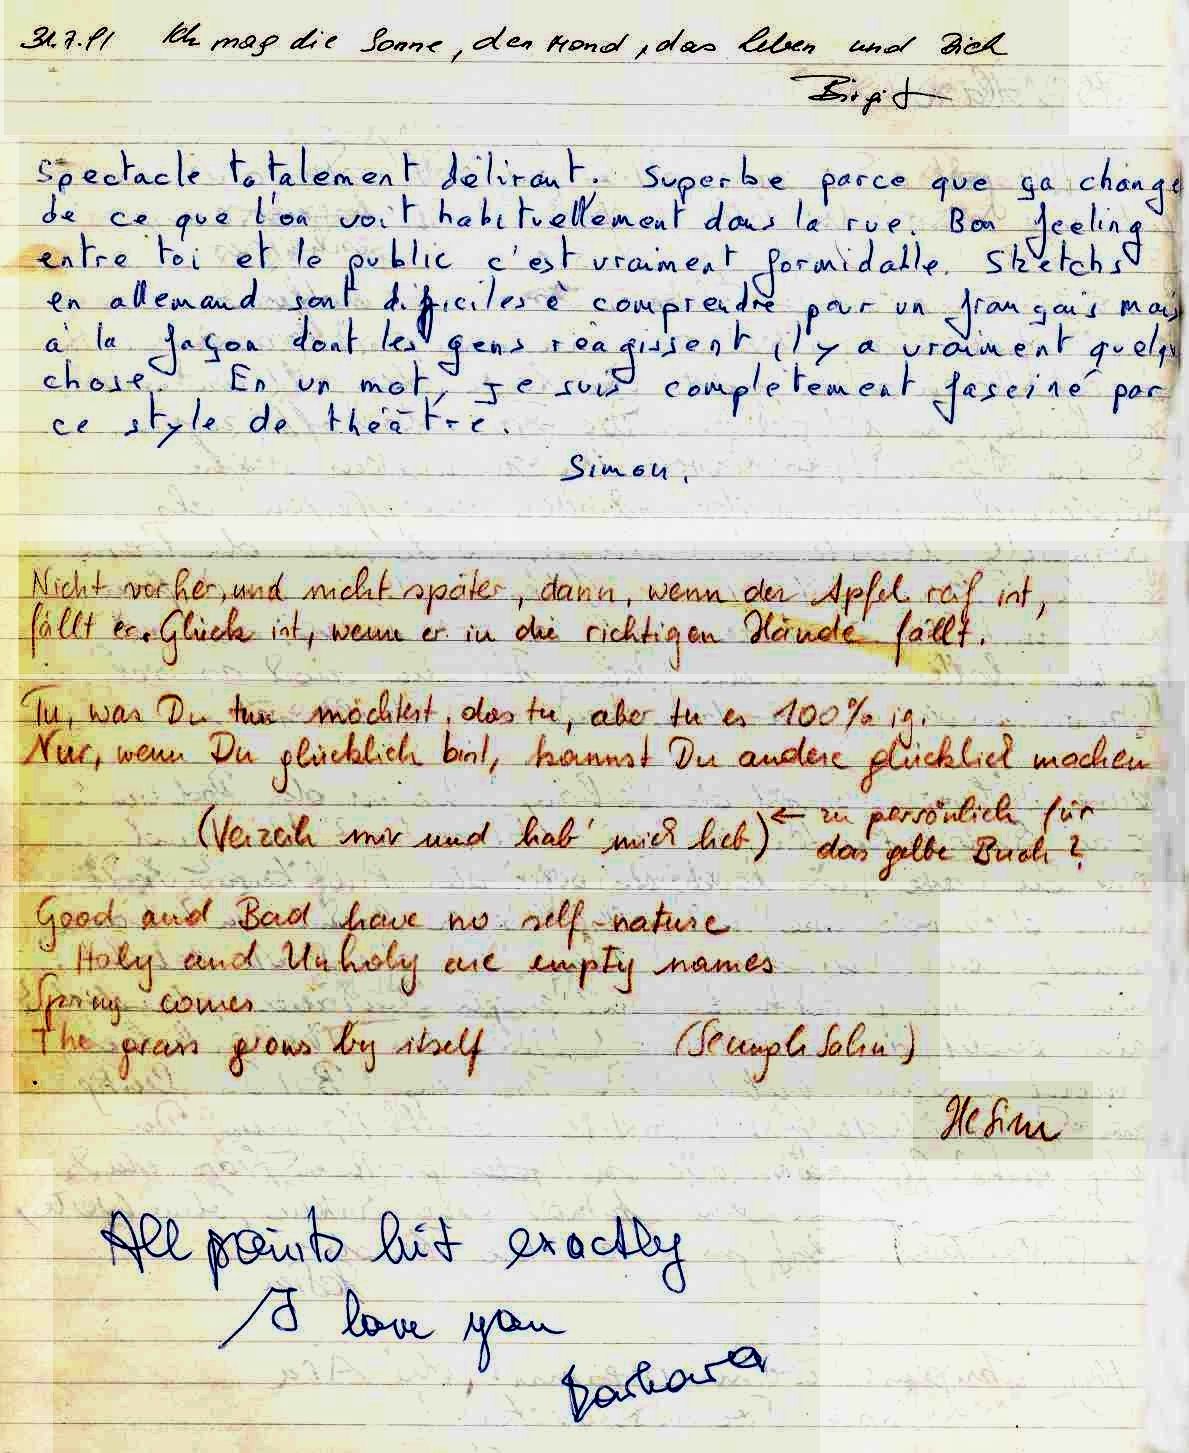 31.7.91 Ich mag die Sonne, den Mond, das Leben und Dich
Birgit
Spectacle totalement délirant. Superbe parce que ça change
de ce que l'on voit habituellement dans la rue. Bon feeling
entre toi et le public c'est vraiment formidable. Sketchs
en allemand sont difficiles à comprendre pour un français mais
à la façon dont les gens réagissent, il y a vraiment quelque
chose. En un mot, je suis complètement fasciné par
ce style de théâtre.
Simon.
Nicht vorher, und nicht später, dann, wenn der Apfel reif ist,
fällt er. Glück ist, wenn er in die richtigen Hände fällt.
Tu, was Du tun möchtest, das tu, aber tu es 100%ig.
Nur, wenn Du glücklich bist, kannst Du andere glücklich machen
(Verzeih mir und hab' mich lieb) ← zu persönlich für
das gelbe Buch?
Good and Bad have no self-nature
Holy and Unholy are empty names
Spring comes
The grass grows by itself
All points hit exactly
I love you
Barbara